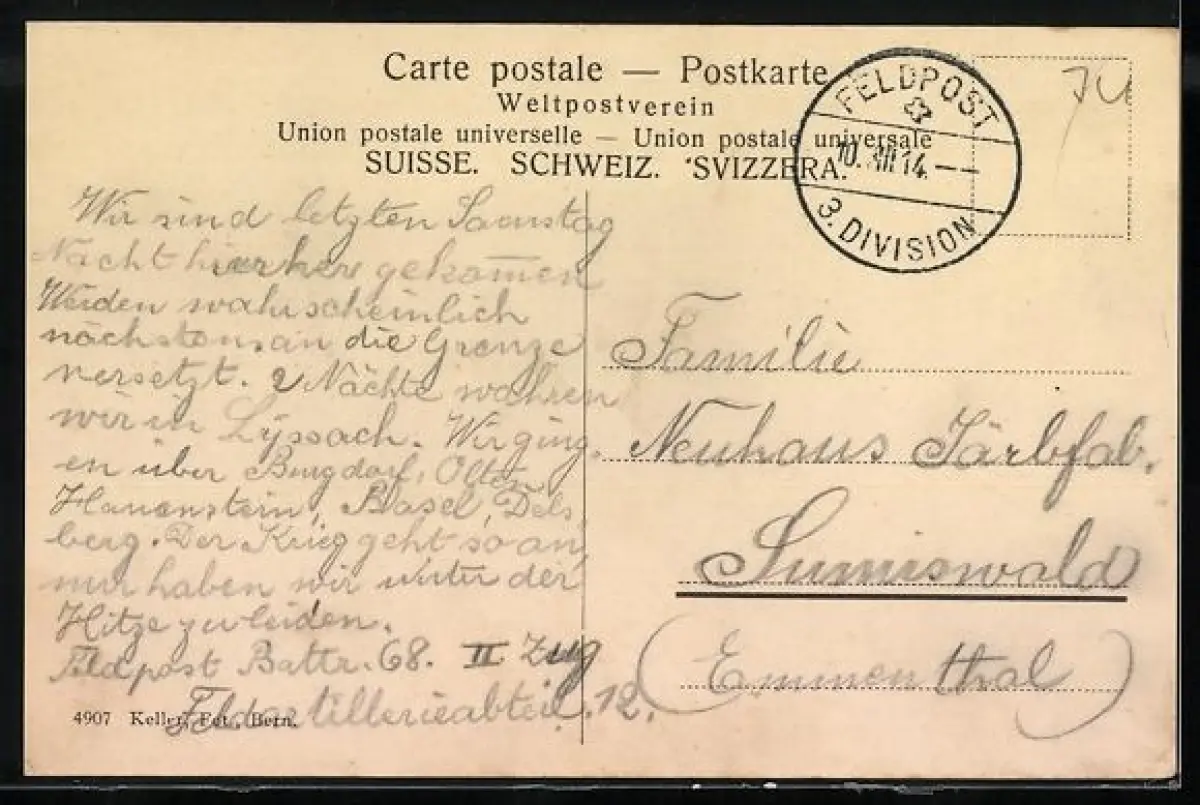 Carte postale — Postkarte
Weltpostverein
Union postale universelle — Union postale universale
SUISSE. SCHWEIZ. SVIZZERA.
FELDPOST
10. VIII 14. --
3. DIVISION
Wir sind letzten Samstag
Nacht hierher gekom̄en
Werden wahrscheinlich
nächstens an die Grenze
versetzt. 2 Nächte wahren
wir in Lyssach. Wir ging.
en über Burgdorf, Olten,
Hauenstein, Basel, Dels
berg. Der Krieg geht so an,
nur haben wir unter der
Hitze zu leiden.
Feldpost Battr. 68. II Zug
Feldartillerieabteil. 12.
4907 Keller, Bern.
Familie
Neuhaus Färbfab.
Sumiswald
(Emmenthal)